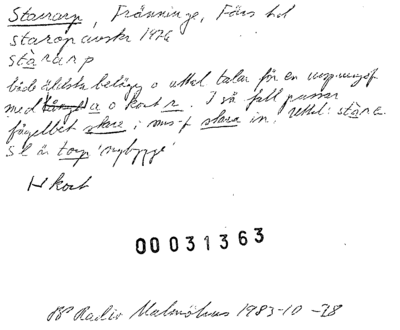 Starrarp, Fränninge, Färs hd
starop 1426
stàrarp
både äldsta belägg o uttal talar för en
med långt a o kort r. I så fall passar
fågelbet stare i ms-f stara in. uttal: stàra
sl är torp 'nybygge'
H kort
00031363
BP Radio Malmöhus 1983-10-28